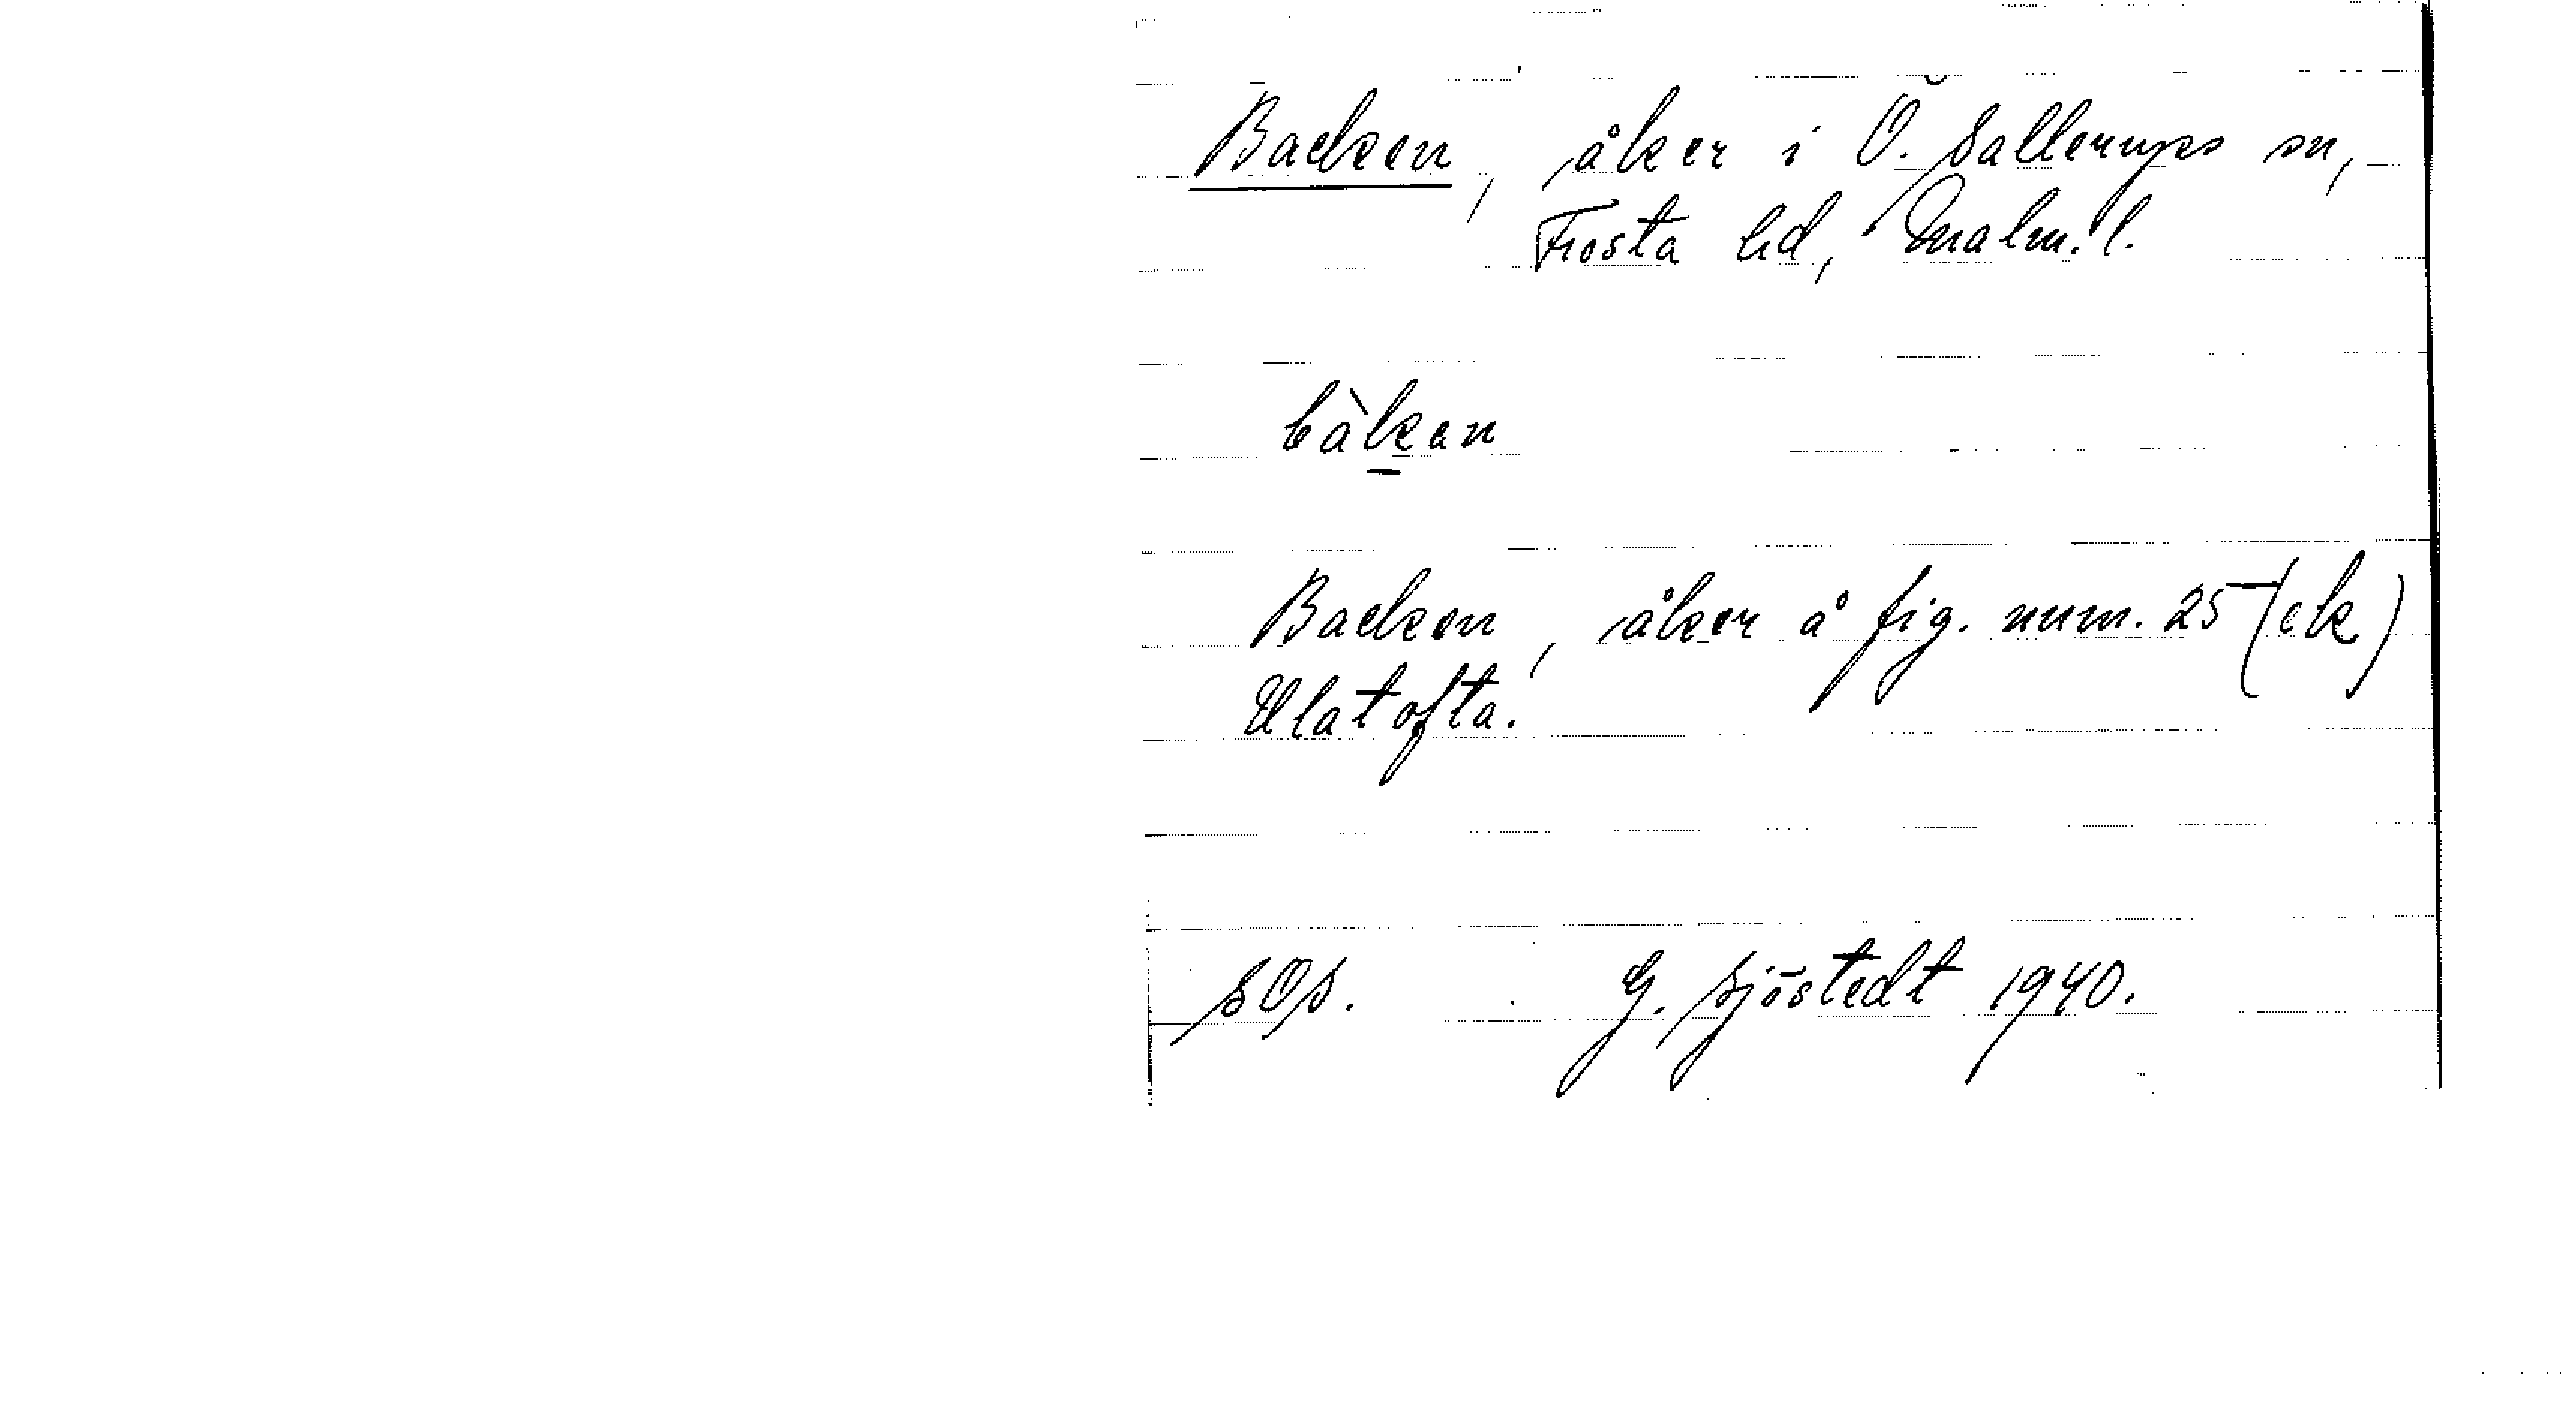 Backen, åker i Ö. Sallerups sn,
Frosta hd, Malm. l.
bàkan
Backen, åker å fig. num. 25 (ek)
Ulatofta.
SOS. G. Sjöstedt 1940.